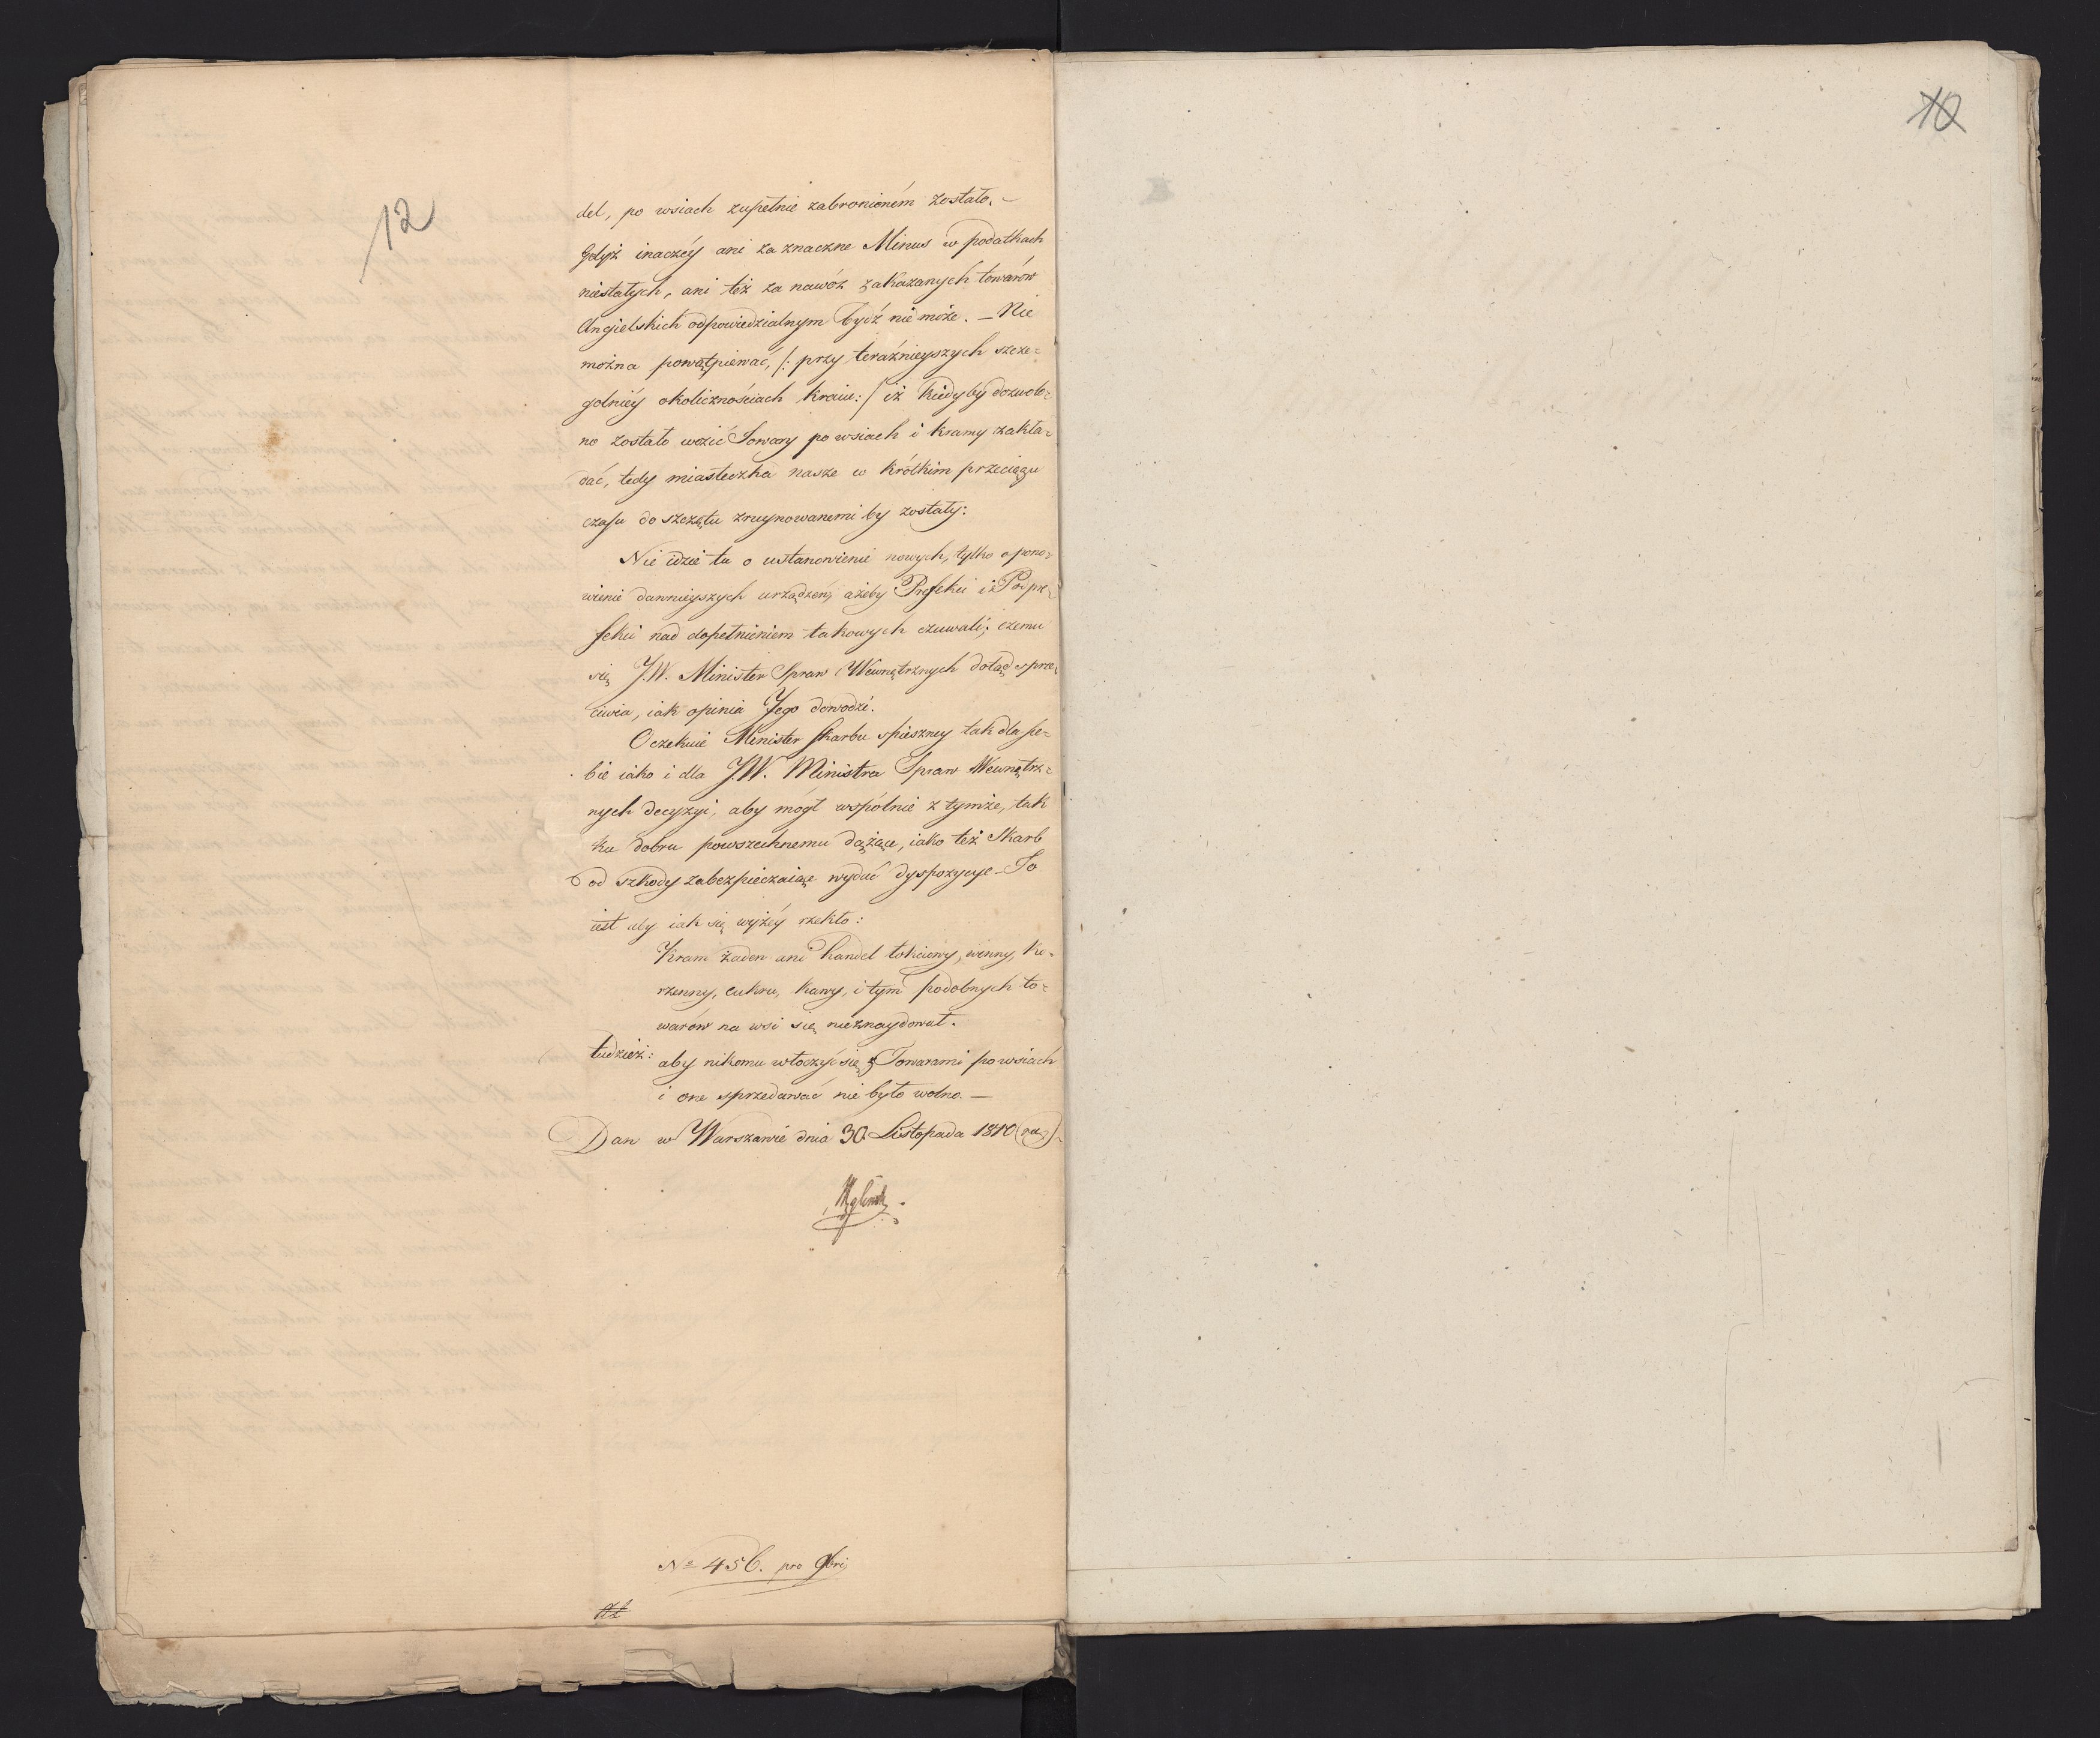 12
del, po wsiach zupełnie zabronioném zostało. –
Gdyż inaczéy ani za znaczne Minus w podatkach
niestałych, ani też za nawóz zakazanych towarów
Angielskich odpowiedzialnym bydź nie może. – Nie
można powątpiewać, /: przy teraźnieyszych szcze=
golniéy okolicznościach kraiu :/ iż kiedyby dozwolo=
no zostało wozić Towary po wsiach i kramy zakła=
dać, tedy miasteczka nasze w krótkim przeciągu
czasu do szczętu zruynowanemi by zostały:
Nie idzie tu o ustanowienie nowych, tylko o pono=
wienie dawnieyszych urządzeń, ażeby Prefekci i Podpre=
fekci nad dopełnieniem takowych czuwali; czemu
się J.W. Minister Spraw Wewnętrznych dotąd sprze=
ciwia, iak opinia Jego dowodzi.
Oczekuie Minister Skarbu spieszney tak dla sie=
bie iako i dla J.W. Ministra Spraw Wewnętrz=
nych decyzyi, aby mógł wspólnie z tymże, tak
ku dobru powszechnemu dążące, iako też Skarb
od szkody zabezpieczaiące wydać dyspozycye – To
iest aby iak się wyżéy rzekło:
Kram żaden ani handel łokciowy, winny, ko=
rzenny, cukru, kawy, i tym podobnych to=
warów na wsi się nieznaydował.
tudzież: aby nikomu włoczyć się z Towarami po wsiach
i one sprzedawać nie było wolno. –
Dan w Warszawie dnia 30 Listopada 1810
No 456. pro 9bri
10